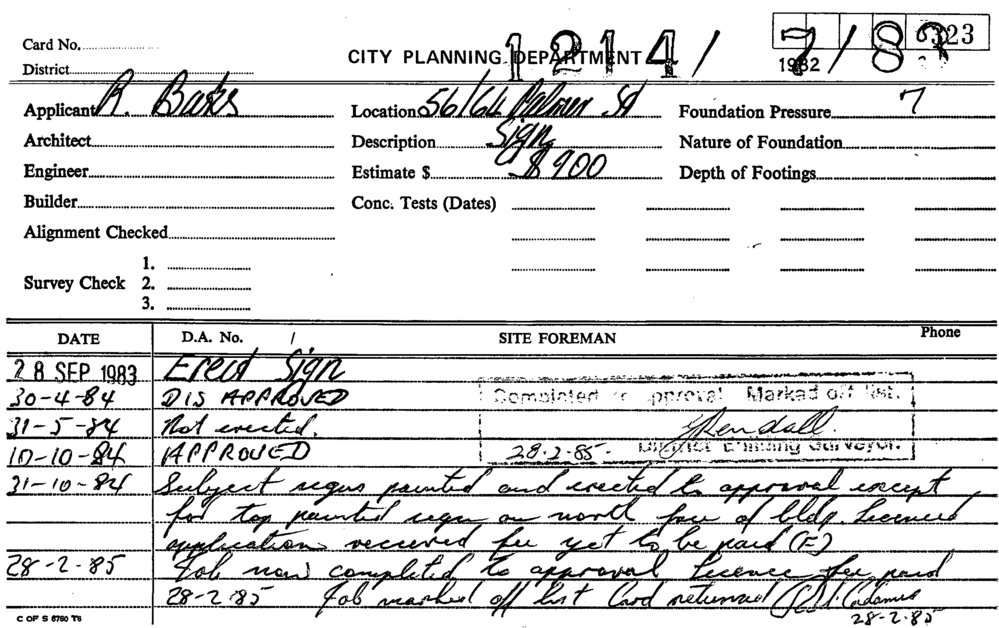 Card No.
District
CITY PLANNING DEPARTMENT
1214/7/83
1982
323
Applicant R. Banks
Location 56/64 Palmer St
Foundation Pressure 7
Architect
Description Sign
Nature of Foundation
Engineer
Estimate $ $900
Depth of Footings
Builder
Conc. Tests (Dates)
Alignment Checked
Survey Check
1.
2.
3.
DATE D.A. No. SITE FOREMAN Phone
28 SEP 1983 Erect Sign
30-4-84 DISAPPROVED
31-5-84 Not erected.
10-10-84 APPROVED
Completed to approval. Marked off list.
28-2-85. District Building Surveyor.
31-10-84 Subject signs painted and erected to approval except
for top painted sign on north face of bldg. Licence
application received fee yet to be paid (E)
28-2-85 Job now completed to approval licence fee paid
28-2-85 Job marked off list Card returned
28-2-85
C OF S 6760 T6